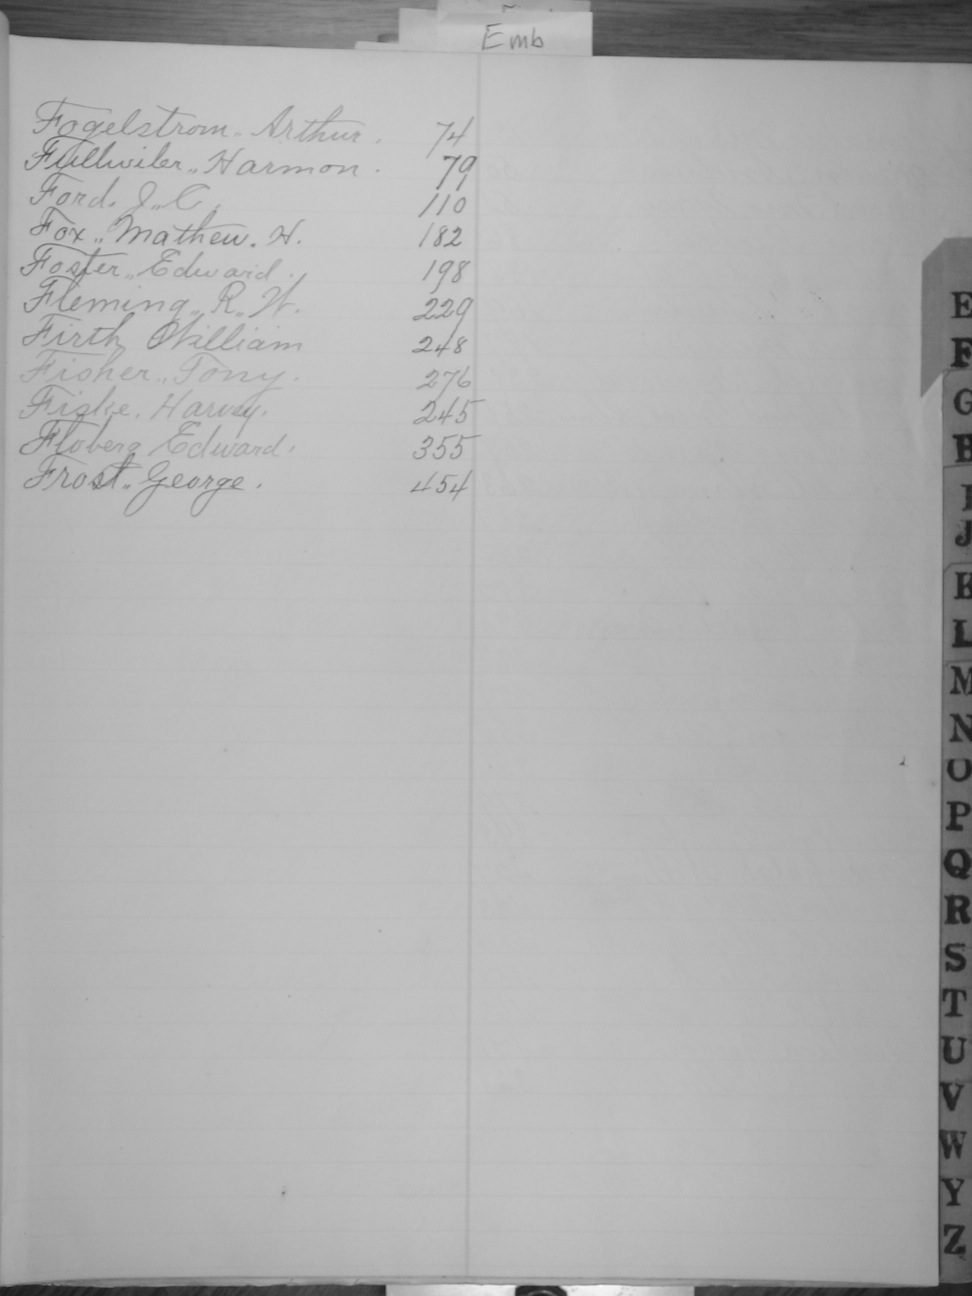 Emb
Fogelstrom. Arthur. 74
Fullwiler,, Harmon. 79
Ford. J,, C. 110
Fox,, Mathew. H. 182
Foster,, Edward. 198
Fleming,, R,, W. 229
Firth William 248
Fisher,, Tony. 276
Fiske. Harvey. 245
Floberg Edward. 355
Frost,, George. 454
E
F
G
H
I
J
K
L
M
N
O
P
Q
R
S
T
U
V
W
Y
Z